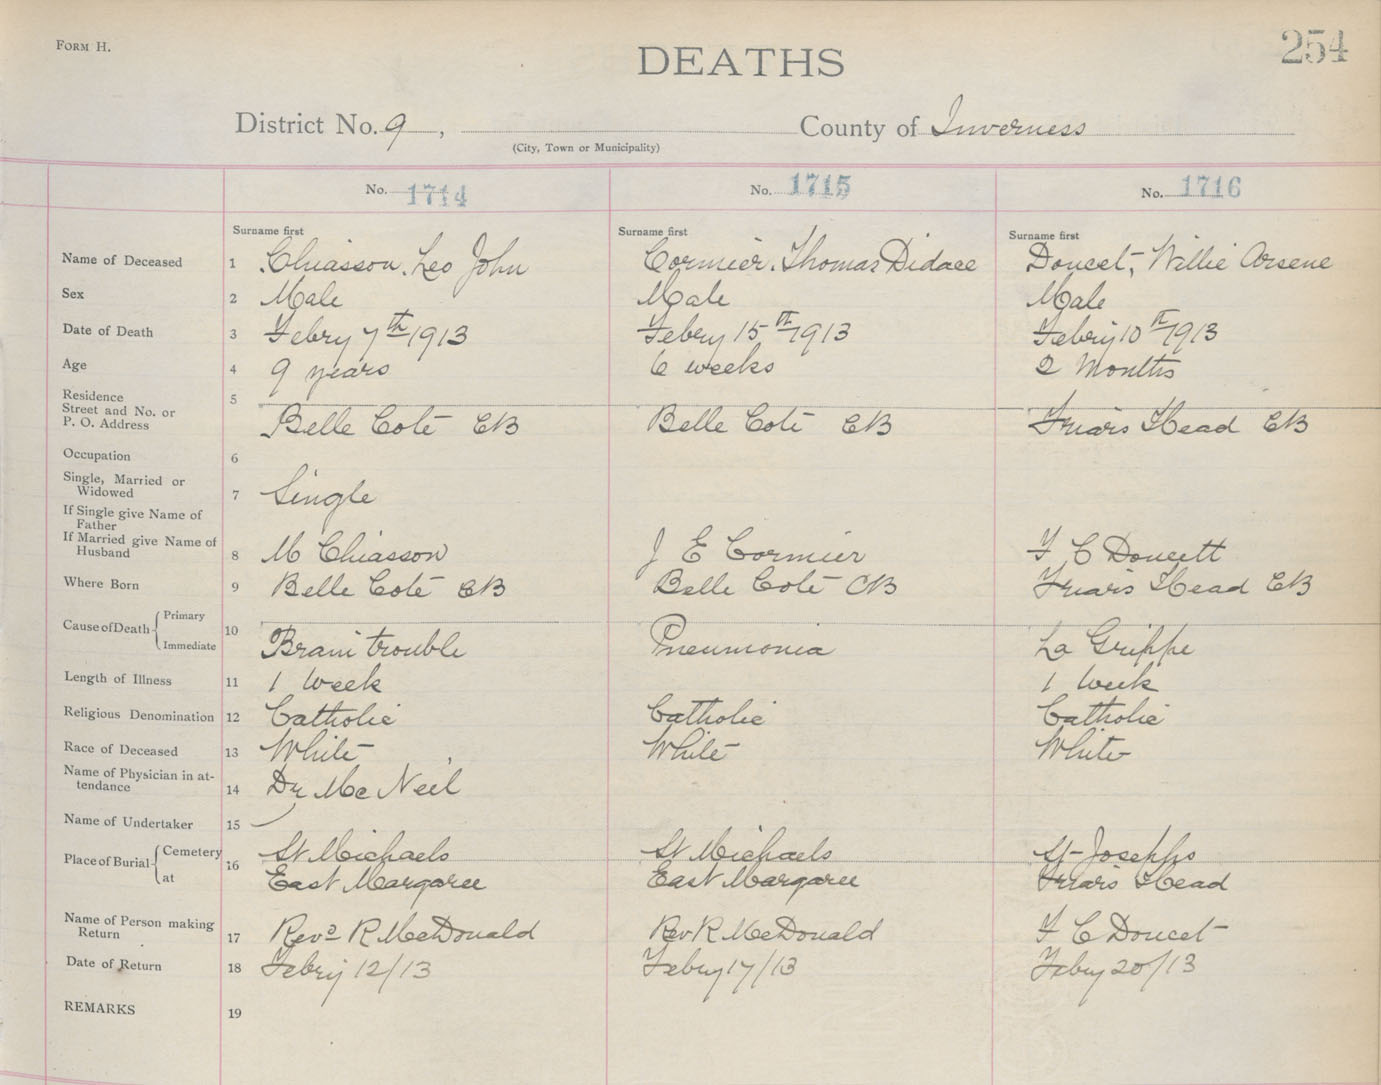 FORM H.
254
DEATHS
District No. 9, County of Inverness
(City, Town or Municipality)
No. 1714 No. 1715 No. 1716
Surname first Surname first Surname first
Name of Deceased 1 Chiasson, Leo John Cormier, Thomas Didace Doucet, Willie Arsene
Sex 2 Male Male Male
Date of Death 3 Febry 7th 1913 Febry 15th 1913 Febry 10th 1913
Age 4 9 years 6 weeks 2 Months
Residence 5
Street and No. or
P. O. Address Belle Cote CB Belle Cote CB Friars Head CB
Occupation 6
Single, Married or
Widowed 7 Single
If Single give Name of
Father
If Married give Name of
Husband 8 M Chiasson J E Cormier F C Doucett
Where Born 9 Belle Cote CB Belle Cote CB Friars Head CB
Cause of Death { Primary
10
Immediate Brain trouble Pneumonia La Grippe
Length of Illness 11 1 Week 1 Week
Religious Denomination 12 Catholic Catholic Catholic
Race of Deceased 13 White White White
Name of Physician in at-
tendance 14 Dr Mc Neil
Name of Undertaker 15
Place of Burial { Cemetery 16 St Michaels St Michaels St Josephs
at East Margaree East Margaree Friars Head
Name of Person making
Return 17 Revd R McDonald Rev R McDonald F C Doucet
Date of Return 18 Febry 12/13 Febry 17/13 Febry 20/13
REMARKS 19